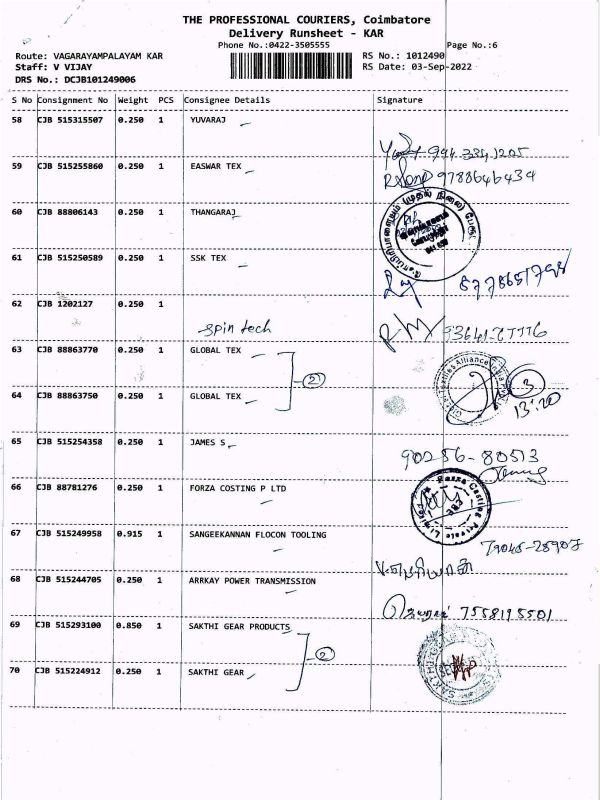 THE PROFESSIONAL COURIERS, Coimbatore
Delivery Runsheet - KAR
Phone No.:0422-3505555 Page No.:6
Route: VAGARAYAMPALAYAM KAR RS No.: 1012490
Staff: V VIJAY RS Date: 03-Sep-2022
DRS No.: DCJB101249006
S No Consignment No Weight PCS Consignee Details Signature
58 CJB 515315507 0.250 1 YUVARAJ
994 3341205
59 CJB 515255860 0.250 1 EASWAR TEX 9788646434
60 CJB 88806143 0.250 1 THANGARAJ
61 CJB 515250589 0.250 1 SSK TEX
62 CJB 1202127 0.250 1
spin tech
63 CJB 88863770 0.250 1 GLOBAL TEX
2
64 CJB 88863750 0.250 1 GLOBAL TEX
3
13:20
65 CJB 515254358 0.250 1 JAMES S
90256-80513
66 CJB 88781276 0.250 1 FORZA COSTING P LTD
67 CJB 515249958 0.915 1 SANGEEKANNAN FLOCON TOOLING
79045-28907
68 CJB 515244705 0.250 1 ARRKAY POWER TRANSMISSION
7558195501
69 CJB 515293100 0.850 1 SAKTHI GEAR PRODUCTS
2
70 CJB 515224912 0.250 1 SAKTHI GEAR